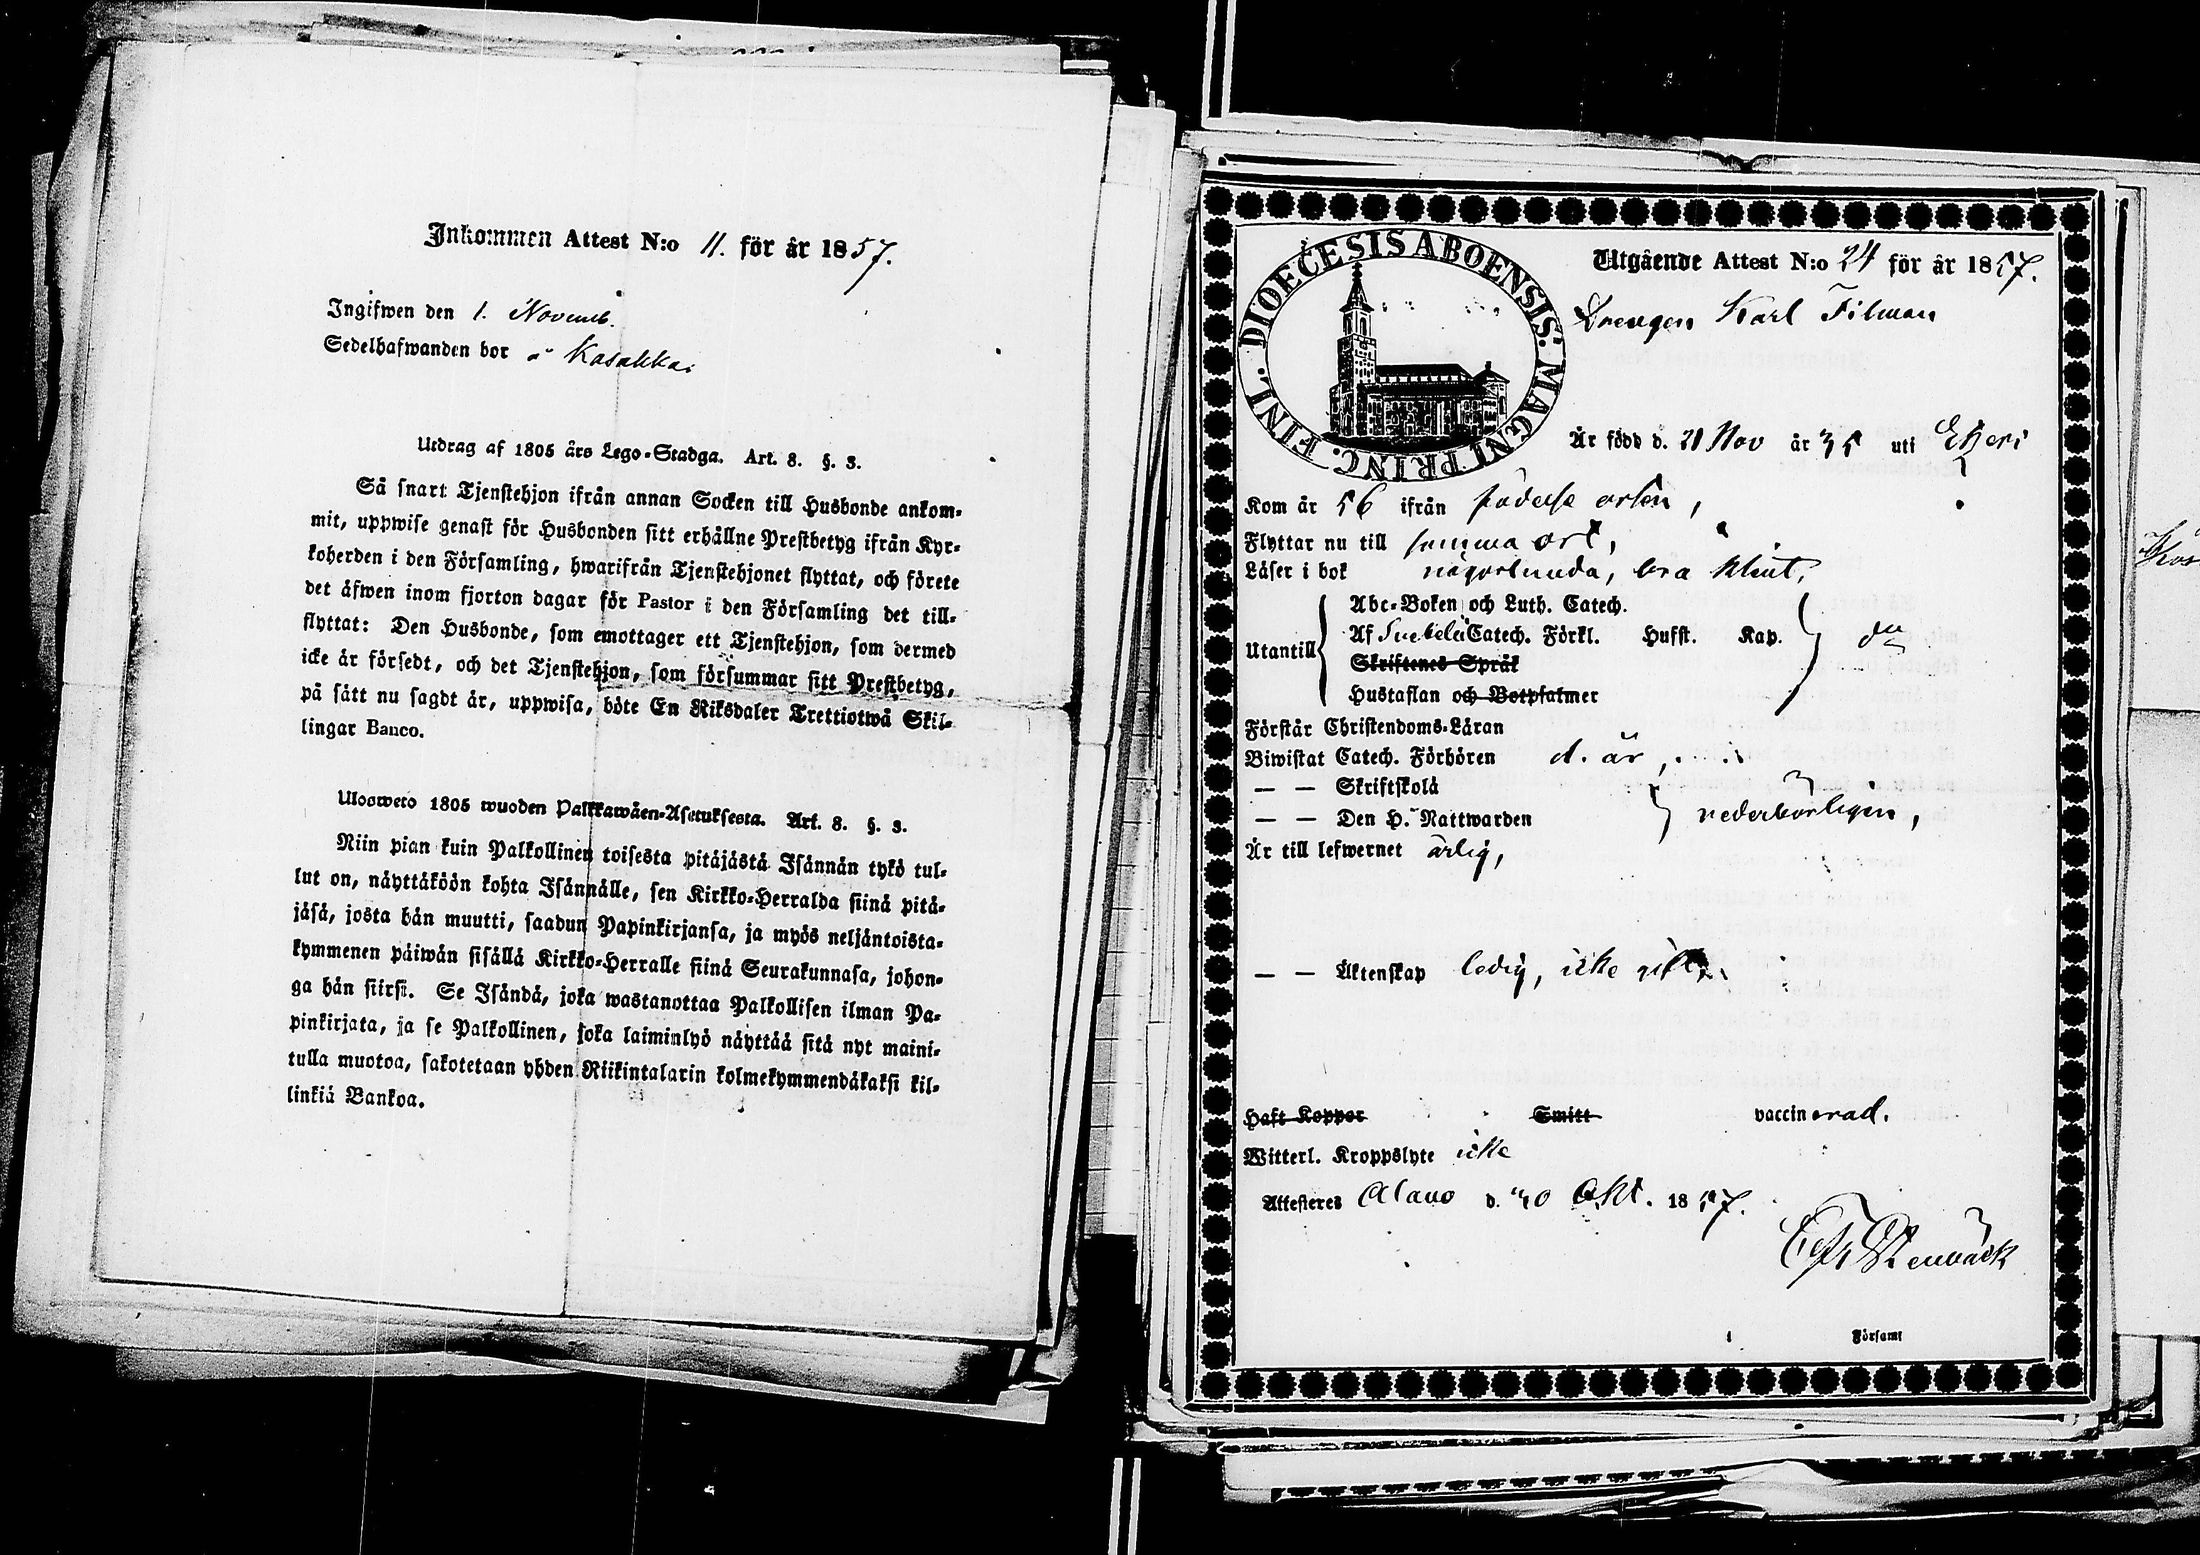 Inkommen Attest N:o 11. för år 1857.
Ingifwen den 1. Novemb.
Sedelhafwanden bor å Kasakka.
Utdrag af 1805 års Lego-Stadga. Art. 8. §. 3.
Så snart Tjenstehjon ifrån annan Socken till Husbonde ankom-
mit, uppwise genast för Husbonden sitt erhållne Prestbetyg ifrån Kyr-
koherden i den Församling, hwarifrån Tjenstehjonet flyttat, och förete
det äfwen inom fjorton dagar för Pastor i den Församling det till-
flyttat: Den Husbonde, som emottager ett Tjenstehjon, som dermed
icke är försedt, och det Tjenstehjon, som försummar sitt Prestbetyg,
på sätt nu sagdt är, uppwisa, böte En Riksdaler Trettiotwå Skil-
lingar Banco.
Ulosweto 1805 wuoden Palkkawäen-Asetuksesta. Art. 8. §. 3.
Niin pian kuin Palkollinen toisesta pitäjästä Isännän tykö tul-
lut on, näyttäköön kohta Isännälle, sen Kirkko-Herralda siinä pitä-
jäsä, josta hän muutti, saadun Papinkirjansa, ja myös neljäntoista-
kymmenen päiwän sisällä Kirkko-Herralle siinä Seurakunnasa, johon-
ga hän siirsi. Se Isändä, joka wastanottaa Palkollisen ilman Pa-
pinkirjata, ja se Palkollinen, joka laiminlyö näyttää sitä nyt maini-
tulla muotoa, sakotetaan yhden Riikintalarin kolmekymmendäkaksi kil-
linkiä Bankoa.
DIOECESIS ABOENSIS. MAGNI PRINC. FINL.
Utgående Attest N:o 24 för år 1857.
Drengen Karl Filman
Är född d. 21 Nov år 35 uti Etseri
Kom år 56 ifrån födelse orten,
Flyttar nu till samma ort,
Läser i bok någorlunda, bra klent,
Abc-Boken och Luth. Catech.
Utantill Af Svebelii Catech. Förkl. Husst. Kap. do
Skriftenes Språk
Hustaflan och Botpsalmer
Förstår Christendoms-Läran
Biwistat Catech. Förhören d. år,
— — Skriftskola
— — Den H. Nattwarden vederbörligen,
Är till lefwernet ärlig,
— — Äktenskap ledig, icke gift.
Haft Koppor Smitt vaccinerad.
Witterl. Kroppslyte icke
Attesteres Alavo d. 30 Okt. 1857.
Stenbäck
Församl